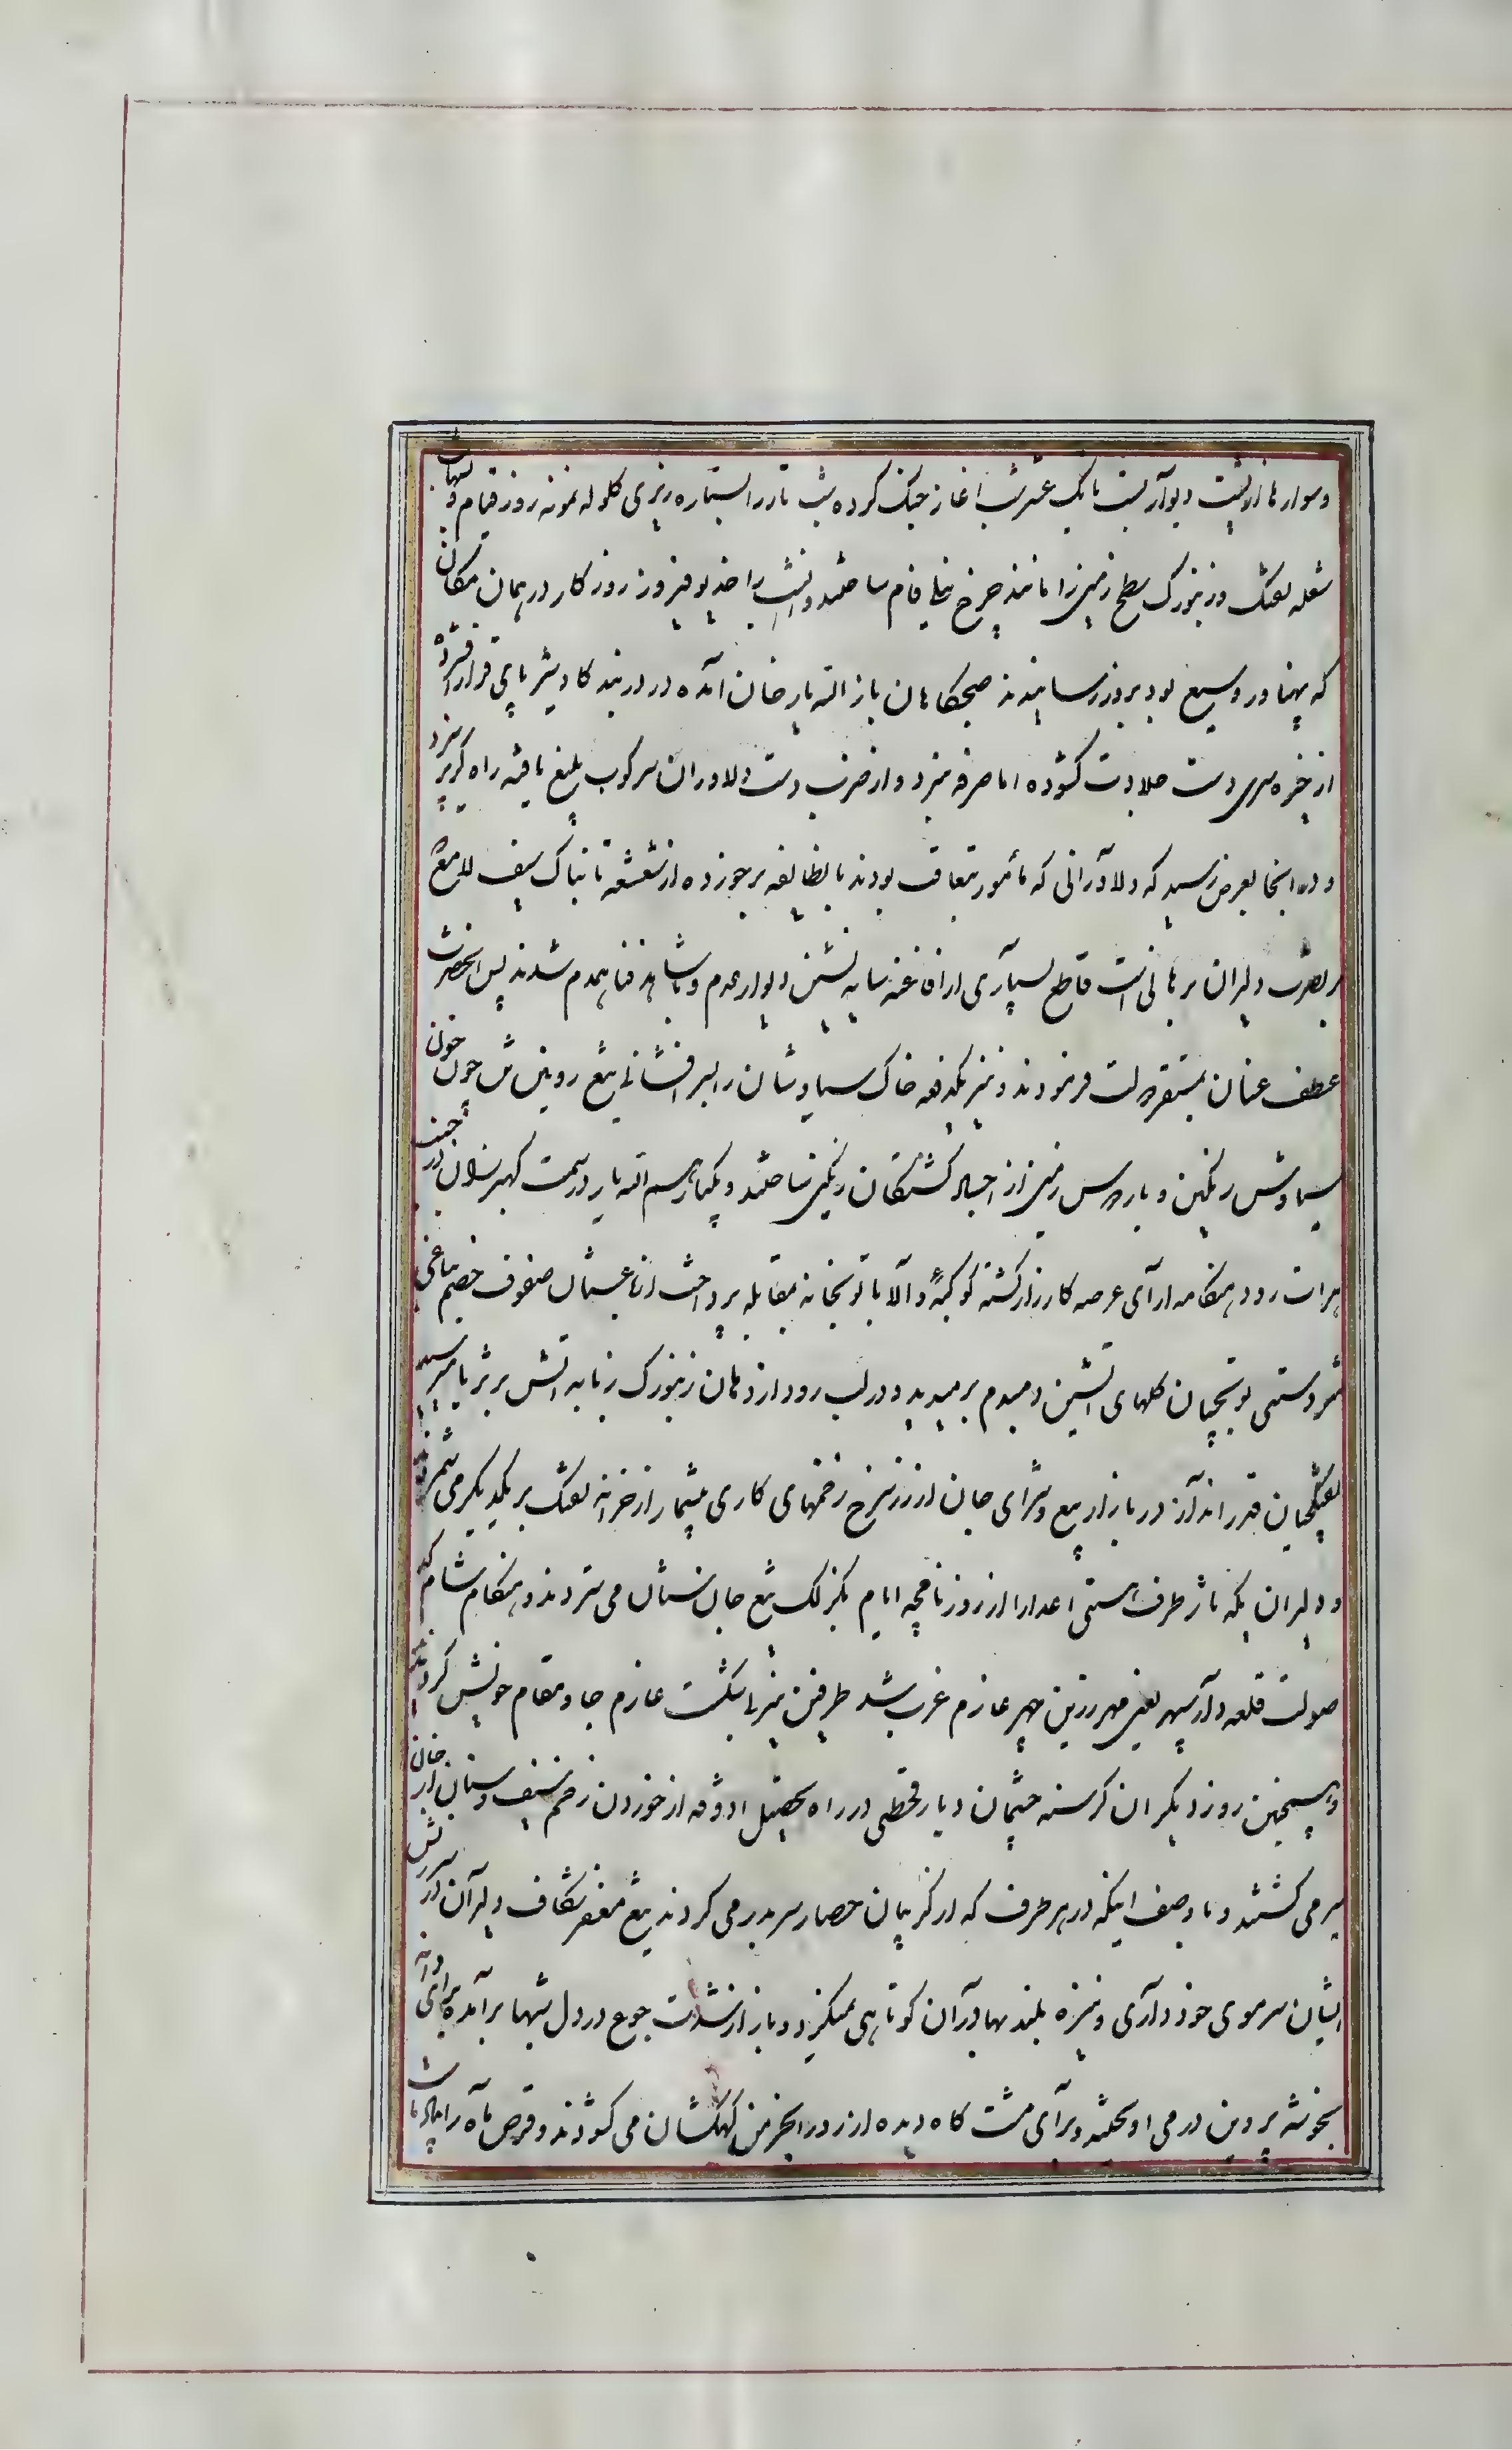 و سوارها از پشت دیوار بست بانک عشرت آغاز جنک کرده شب تار را بستاره ریزی کلوله نمونه روز قیام و بلهاب
شعله تفنک و زنبورک سطح زمین را مانند چرخ نیلی فام ساختند و انشب را خدیو فیروز روزکار در همان مکان
که پهناور و وسیع بود بروز رسانیدند صبحکاهان باز الله یار خان آمده در دربند کادیشر پای قرار افشرده
از خیره سری دست جلادت کشوده اما صرفه نبرد و از ضرب دست دلاوران سرکوب بلیغ یافته راه کریز سپرد
و در انجا بعرض رسید که دلاورانی که مأمور بتعاقب بودند بانطایفه برخورده از شعشعه تابناک سیف لامع
بر نصرت دلیران برهانی است قاطع بسیاری از افاغنه سایه نشین دیوار عدم و با شاهد فنا همدم شدند پس انحضرت
عطف عنان بمستقر دولت فرمودند و نیز یکدفعه خاک سیاوشان را بسر افشانی تیغ رویین تن چون خون
سیاوش رنکین و بار دوش زمین از اجساد کشتکان سنکین ساختند و یکبار هم الله یار در سمت کهدستان در جنب
هرات رود هنکامه آرای عرصه کارزار کشته کوکبه والا با توپخانه بمقابله پرداخت از باغستان صفوف خصم باغی
ثمر دستی توپچیان کلهای آتشین دمبدم برمیدمید و در لب رود از دهان زنبورک زبانه آتش بر ثریا میرسید
تفنکچیان قدر انداز در بازار بیع و شرای جان از زر سرخ زخمهای کاری بیشمار از خزانه تفنک بر یکدیکر می شمردند
و دلیران یکه تاز حرف هستی اعدا را از روزنامچه ایام بکزلک تیغ جان ستان می ستردند و هنکام شام که
صولت قلعه دار سپهر یعنی مهر زرین چهر عازم غرب شد طرفین نیز با شکست عازم جا و مقام خویش کردیدند
و همچنین روز دیکر ان کرسنه چشمان دیار قحطی در راه تحصیل آذوقه از خوردن زخم سیف و سنان از جان
سیر می کشتند و با وصف اینکه در هر طرف که از کریبان حصار سر بدر می کردند تیغ مغفر شکاف دلیران در سر زنش
ایشان سر موی خود داری و نیزه بلند بهادران کوتاهی نمیکرد و باز از شدت جوع در دل شبها برآمده برای دانه
بخوشه پروین در می آویختند و برای مشت کاه دیده از زر در بخرمن کهکشان می کشودند و قرص ماه را بجای نان